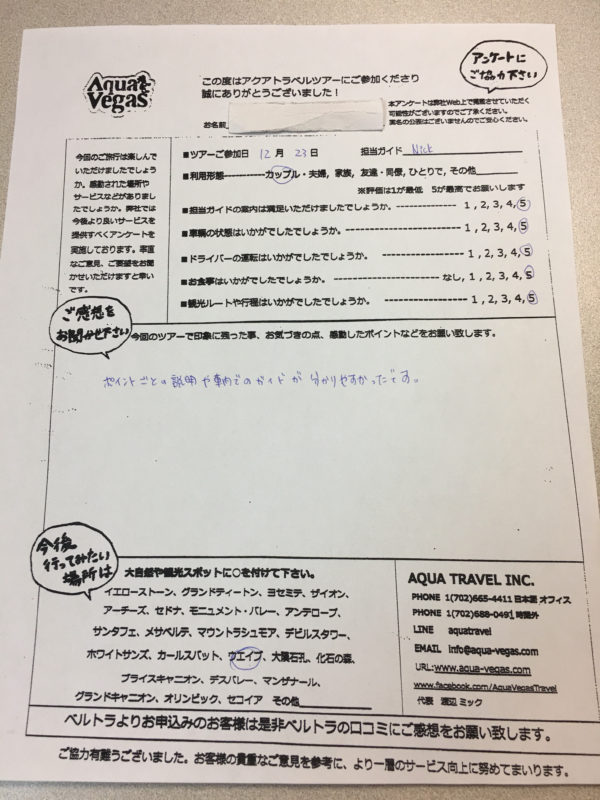 Aqua
Vegas
この度はアクアトラベルツアーにご参加くださり
誠にありがとうございました！
アンケートに
ご協力下さい
お名前
本アンケートは弊社Web上で掲載させていただく
可能性がございますのでご了承ください。
実名の公表はございませんのでご安心ください。
今回のご旅行は楽しんで
いただけましたでしょう
か。感動された場所や
サービスなどがありまし
たでしょうか。弊社では
今後より良いサービスを
提供すべくアンケートを
実施しております。率直
なご意見、ご要望をお聞
かせいただけますと幸い
です。
■ツアーご参加日 12 月 23 日 担当ガイド Nick
■利用形態-----------カップル・夫婦, 家族, 友達・同僚, ひとりで, その他
※評価は1が最低 5が最高でお願いします
■担当ガイドの案内は満足いただけましたでしょうか。 ---------- 1 , 2, 3, 4, 5
■車輌の状態はいかがでしたでしょうか。 ---------- 1 , 2, 3, 4, 5
■ドライバーの運転はいかがでしたでしょうか。 ---------- 1 , 2, 3, 4, 5
■お食事はいかがでしたでしょうか。 ---------- なし, 1, 2, 3, 4, 5
■観光ルートや行程はいかがでしたでしょうか。 ---------- 1, 2, 3, 4, 5
ご感想を
お聞かせ下さい
今回のツアーで印象に残った事、お気づきの点、感動したポイントなどをお願い致します。
ポイントごとの説明や車内でのガイドが分かりやすかったです。
今後
行ってみたい
場所は
大自然や観光スポットに○を付けて下さい。
イエローストーン、グランドティートン、ヨセミテ、ザイオン、
アーチーズ、セドナ、モニュメント・バレー、アンテロープ、
サンタフェ、メサベルテ、マウントラシュモア、デビルスタワー、
ホワイトサンズ、カールスバット、ウエイブ、大隕石孔、化石の森、
ブライスキャニオン、デスバレー、マンザナール、
グランドキャニオン、オリンピック、セコイア その他
AQUA TRAVEL INC.
PHONE 1(702)665-4411 日本語 オフィス
PHONE 1(702)688-0491 時間外
LINE aquatravel
EMAIL info@aqua-vegas.com
URL:www.aqua-vegas.com
www.facebook.com/AquaVegasTravel
代表 渡辺 ミック
ベルトラよりお申込みのお客様は是非ベルトラの口コミにご感想をお願い致します。
ご協力有難うございました。お客様の貴重なご意見を参考に、より一層のサービス向上に努めてまいります。